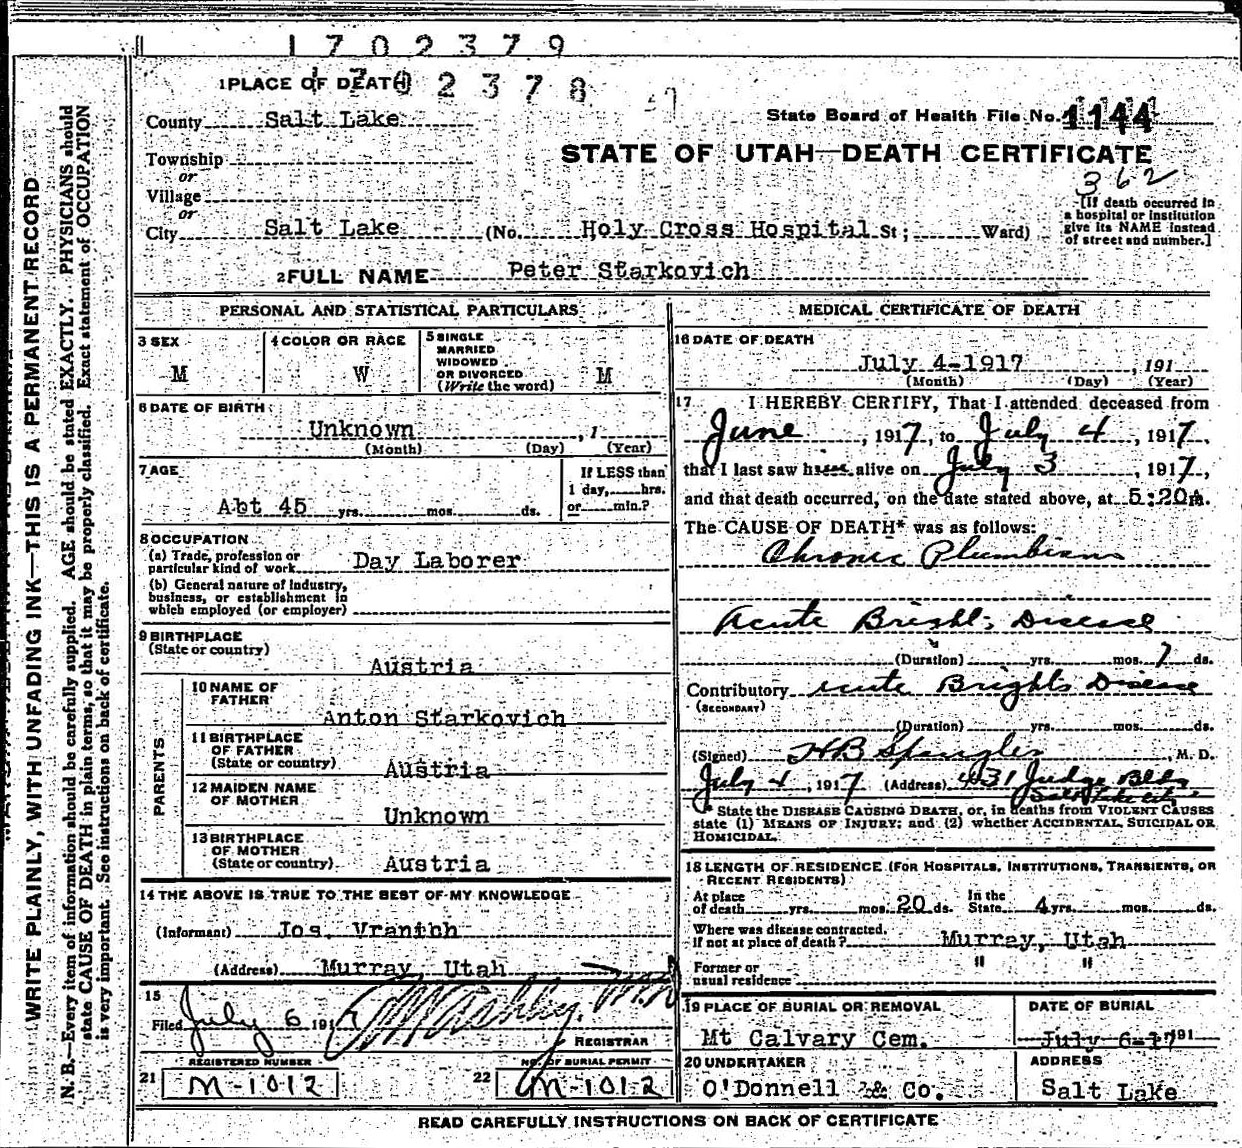 1702379
1PLACE OF DEATH 1702378
County Salt Lake
State Board of Health File No. 1144
Township
or
STATE OF UTAH—DEATH CERTIFICATE
362
Village
or
City Salt Lake (No. Holy Cross Hospital St; Ward)
[If death occurred in
a hospital or institution
give its NAME instead
of street and number.]
2FULL NAME Peter Starkovich
PERSONAL AND STATISTICAL PARTICULARS
3 SEX
M
4 COLOR OR RACE
W
5 SINGLE
MARRIED
WIDOWED
OR DIVORCED
(Write the word) M
6 DATE OF BIRTH
Unknown , 1
(Month) (Day) (Year)
7 AGE
Abt 45 yrs. mos. ds.
If LESS than
1 day, hrs.
or min.?
8 OCCUPATION
(a) Trade, profession or
particular kind of work Day Laborer
(b) General nature of industry,
business, or establishment in
which employed (or employer)
9 BIRTHPLACE
(State or country)
Austria
PARENTS
10 NAME OF
FATHER
Anton Starkovich
11 BIRTHPLACE
OF FATHER
(State or country) Austria
12 MAIDEN NAME
OF MOTHER
Unknown
13 BIRTHPLACE
OF MOTHER
(State or country) Austria
14 THE ABOVE IS TRUE TO THE BEST OF MY KNOWLEDGE
(Informant) Jos. Vranich
(Address) Murray, Utah
15
Filed July 6 1917
M.D.
REGISTRAR
REGISTERED NUMBER
21 M-1012
NO. OF BURIAL PERMIT
22 M-1012
MEDICAL CERTIFICATE OF DEATH
16 DATE OF DEATH
July 4-1917 , 191
(Month) (Day) (Year)
17 I HEREBY CERTIFY, That I attended deceased from
June , 1917, to July 4 , 1917,
that I last saw him alive on July 3 , 1917,
and that death occurred, on the date stated above, at 5:20A.
The CAUSE OF DEATH* was as follows:
Chronic Plumbism
Acute Brights Disease
(Duration) yrs. mos. 7 ds.
Contributory Acute Brights Disease
(SECONDARY)
(Duration) yrs. mos. ds.
(Signed) HB Spangler , M. D.
July 4 , 1917 (Address) 431 Judge Bldg
Salt Lake City
* State the DISEASE CAUSING DEATH, or, in deaths from VIOLENT CAUSES
state (1) MEANS OF INJURY; and (2) whether ACCIDENTAL, SUICIDAL OR
HOMICIDAL.
18 LENGTH OF RESIDENCE (FOR HOSPITALS, INSTITUTIONS, TRANSIENTS, OR
RECENT RESIDENTS)
At place
of death yrs. mos. 20 ds.
In the
State 4 yrs. mos. ds.
Where was disease contracted,
if not at place of death? Murray, Utah
Former or
usual residence
" "
19 PLACE OF BURIAL OR REMOVAL
Mt Calvary Cem.
DATE OF BURIAL
July 6-17 191
20 UNDERTAKER
O'Donnell & Co.
ADDRESS
Salt Lake
READ CAREFULLY INSTRUCTIONS ON BACK OF CERTIFICATE
WRITE PLAINLY, WITH UNFADING INK—THIS IS A PERMANENT RECORD
N. B.—Every item of information should be carefully supplied. AGE should be stated EXACTLY. PHYSICIANS should
state CAUSE OF DEATH in plain terms, so that it may be properly classified. Exact statement of OCCUPATION
is very important. See instructions on back of certificate.